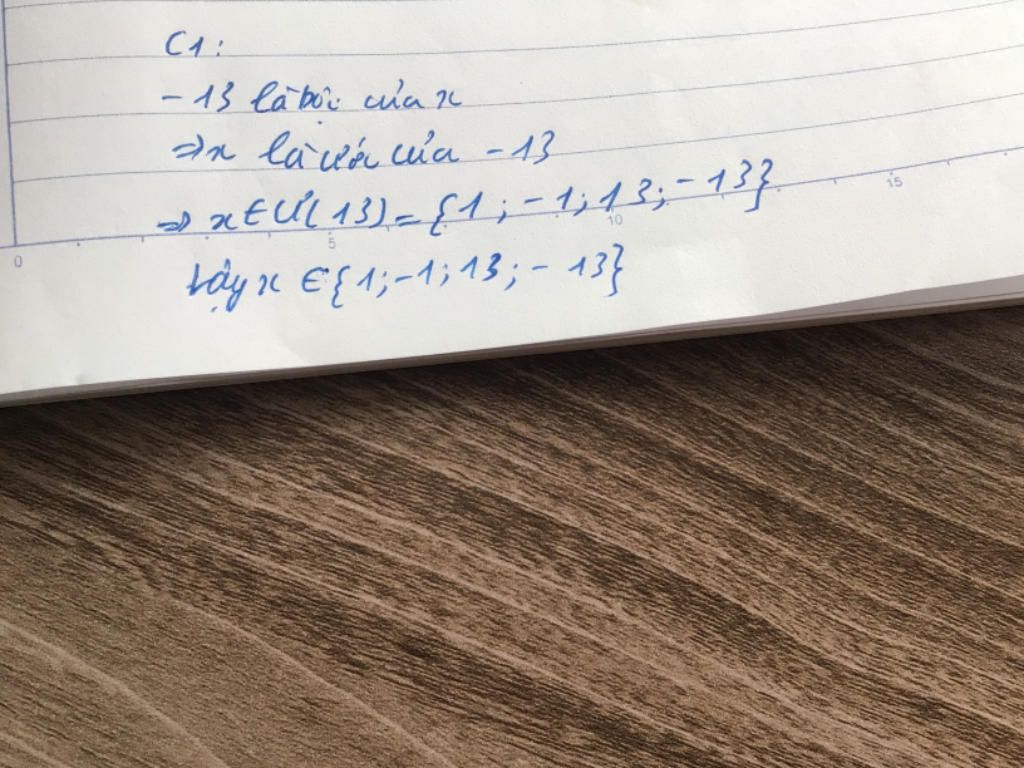 C1:
- 13 là bội của x
=> x là ước của - 13
=> x ∈ Ư(13) = {1; -1; 13; - 13}
0 5 10 15
Vậy x ∈ {1; -1; 13; - 13}